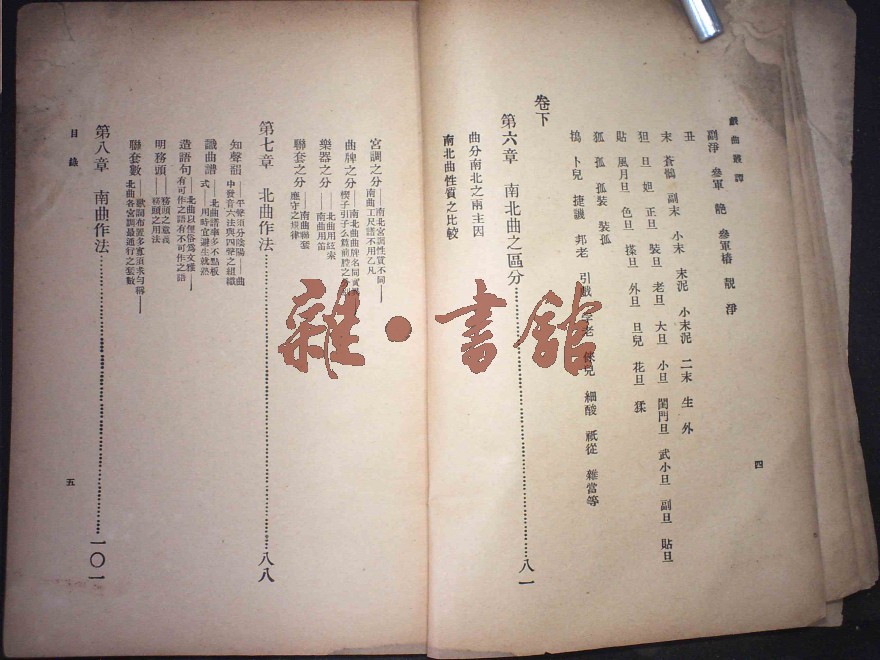 戲曲叢譚
四
副淨 參軍 艳 參軍樁 靚 淨
丑
末 蒼鶻 副末 小末 末泥 小末泥 二末 生 外
狚 旦 妲 正旦 裝旦 老旦 大旦 小旦 閨門旦 武小旦 副旦 貼旦
貼 風月旦 色旦 搽旦 外旦 旦兒 花旦 猱
狐 孤 孤裝 裝孤
鴇 卜兒 捷譏 邦老 引戲 孛老 倈兒 細酸 祇從 雜當等
卷下
第六章 南北曲之區分……八一
曲分南北之兩主因
南北曲性質之比較
宮調之分——南北宮調性質不同——
南曲工尺譜不用乙凡
曲牌之分——南北曲曲牌名同實異——
楔子引子么篇前腔之
樂器之分——北曲用絃索
——南曲用笛
聯套之分——南曲聯套
應守之規律
第七章 北曲作法……八八
知聲韻——平聲須分陰陽——曲
中發音六法與四聲之組織
識曲譜——北曲譜類多不點板
式——用時宜避生就熟
造語句——北曲以俚俗爲文雅——
有可作之語有不可作之語
明務頭——務頭之意義
——務頭之用法
聯套數——歌詞布置多寡須求勻稱——
北曲各宮調最通行之套數
第八章 南曲作法……一〇一
目錄
五
雜·書館